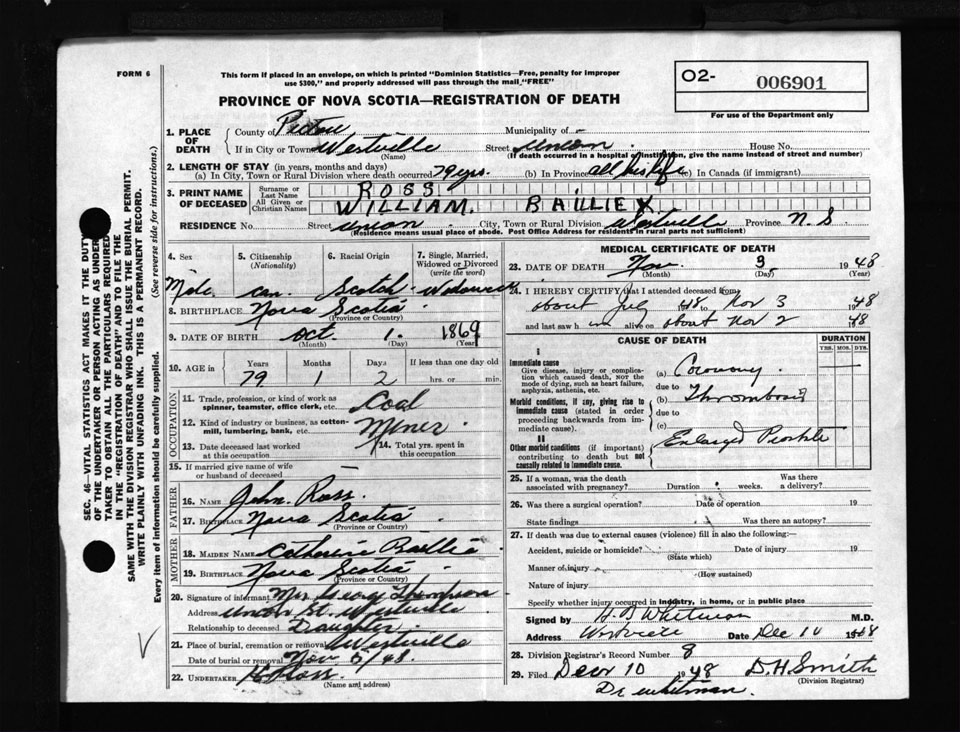 FORM 6
This form if placed in an envelope, on which is printed "Dominion Statistics—Free, penalty for improper
use $300," and properly addressed will pass through the mail "FREE"
O2- 006901
For use of the Department only
PROVINCE OF NOVA SCOTIA—REGISTRATION OF DEATH
1. PLACE OF DEATH
County of Pictou Municipality of -
If in City or Town Westville Street Union House No.
(Name) (If death occurred in a hospital or institution, give the name instead of street and number)
2. LENGTH OF STAY (in years, months and days)
(a) In City, Town or Rural Division where death occurred 79 yrs. (b) In Province all his life (c) In Canada (if immigrant)
3. PRINT NAME OF DECEASED
Surname or Last Name ROSS.
All Given or Christian Names WILLIAM. BAILLIE
RESIDENCE No. Street Union City, Town or Rural Division Westville Province N. S
(Residence means usual place of abode. Post Office Address for residents in rural parts not sufficient)
SEC. 46—VITAL STATISTICS ACT MAKES IT THE DUTY
OF THE UNDERTAKER OR PERSON ACTING AS UNDER-
TAKER TO OBTAIN ALL THE PARTICULARS REQUIRED
IN THE "REGISTRATION OF DEATH" AND TO FILE THE
SAME WITH THE DIVISION REGISTRAR WHO SHALL ISSUE THE BURIAL PERMIT.
WRITE PLAINLY WITH UNFADING INK. THIS IS A PERMANENT RECORD.
Every item of information should be carefully supplied. (See reverse side for instructions.)
4. Sex 5. Citizenship (Nationality) 6. Racial Origin 7. Single, Married, Widowed or Divorced (write the word)
Male Can. Scotch Widowed
8. BIRTHPLACE Nova Scotia
(Province or Country)
9. DATE OF BIRTH Oct. 1. 1869
(Month) (Day) (Year)
10. AGE in Years Months Days If less than one day old
79 1 2 hrs. or min.
OCCUPATION
11. Trade, profession, or kind of work as spinner, teamster, office clerk, etc. Coal
12. Kind of industry or business, as cotton-mill, lumbering, bank, etc. Miner
13. Date deceased last worked at this occupation 14. Total yrs. spent in this occupation
15. If married give name of wife or husband of deceased —
FATHER
16. NAME John Ross.
17. BIRTHPLACE Nova Scotia
(Province or Country)
MOTHER
18. MAIDEN NAME Catherine Baillie
19. BIRTHPLACE Nova Scotia
(Province or Country)
20. Signature of informant Mrs George Thompson
Address Union St. Westville
Relationship to deceased Daughter
21. Place of burial, cremation or removal Westville
Date of burial or removal Nov 5/48.
22. UNDERTAKER Ross.
(Name and address)
MEDICAL CERTIFICATE OF DEATH
23. DATE OF DEATH Nov. 3 1948
(Month) (Day) (Year)
24. I HEREBY CERTIFY that I attended deceased from
about July 1948 to Nov 3 1948
and last saw him alive on about Nov 2 1948
CAUSE OF DEATH DURATION
YRS. MOS. DYS.
I
Immediate cause
Give disease, injury or complication which caused death, NOT the mode of dying, such as heart failure, asphyxia, asthenia, etc.
(a) Coronary
due to
Morbid conditions, if any, giving rise to immediate cause (stated in order proceeding backwards from immediate cause).
(b) Thrombosis
due to
(c)
II
Other morbid conditions (if important) contributing to death but not causally related to immediate cause.
Enlarged Prostate
25. If a woman, was the death associated with pregnancy? Duration weeks. Was there a delivery?
26. Was there a surgical operation? Date of operation 19
State findings Was there an autopsy?
27. If death was due to external causes (violence) fill in also the following:—
Accident, suicide or homicide? Date of injury 19
(State which)
Manner of injury
(How sustained)
Nature of injury
Specify whether injury occurred in industry, in home, or in public place
Signed by H B Whitman M.D.
Address Westville Date Dec 10 1948
28. Division Registrar's Record Number 8
29. Filed Decr 10 1948 D.H. Smith
(Division Registrar)
Dr Whitman.